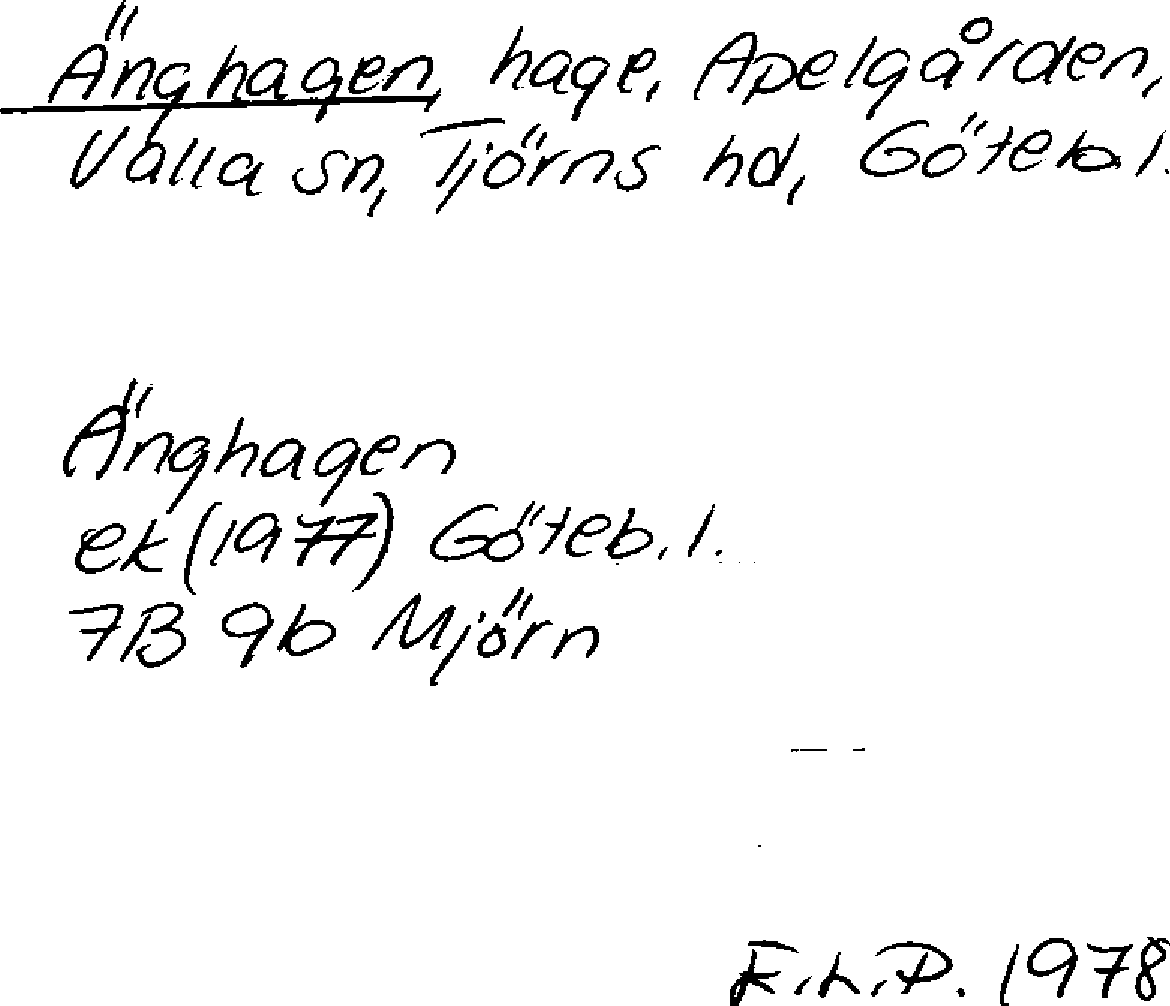 Änghagen, hage, Apelgården,
Valla sn, Tjörns hd, Göteb.l.
Änghagen
ek (1977) Göteb. l.
7B 9b Mjörn
E.L.P. 1978